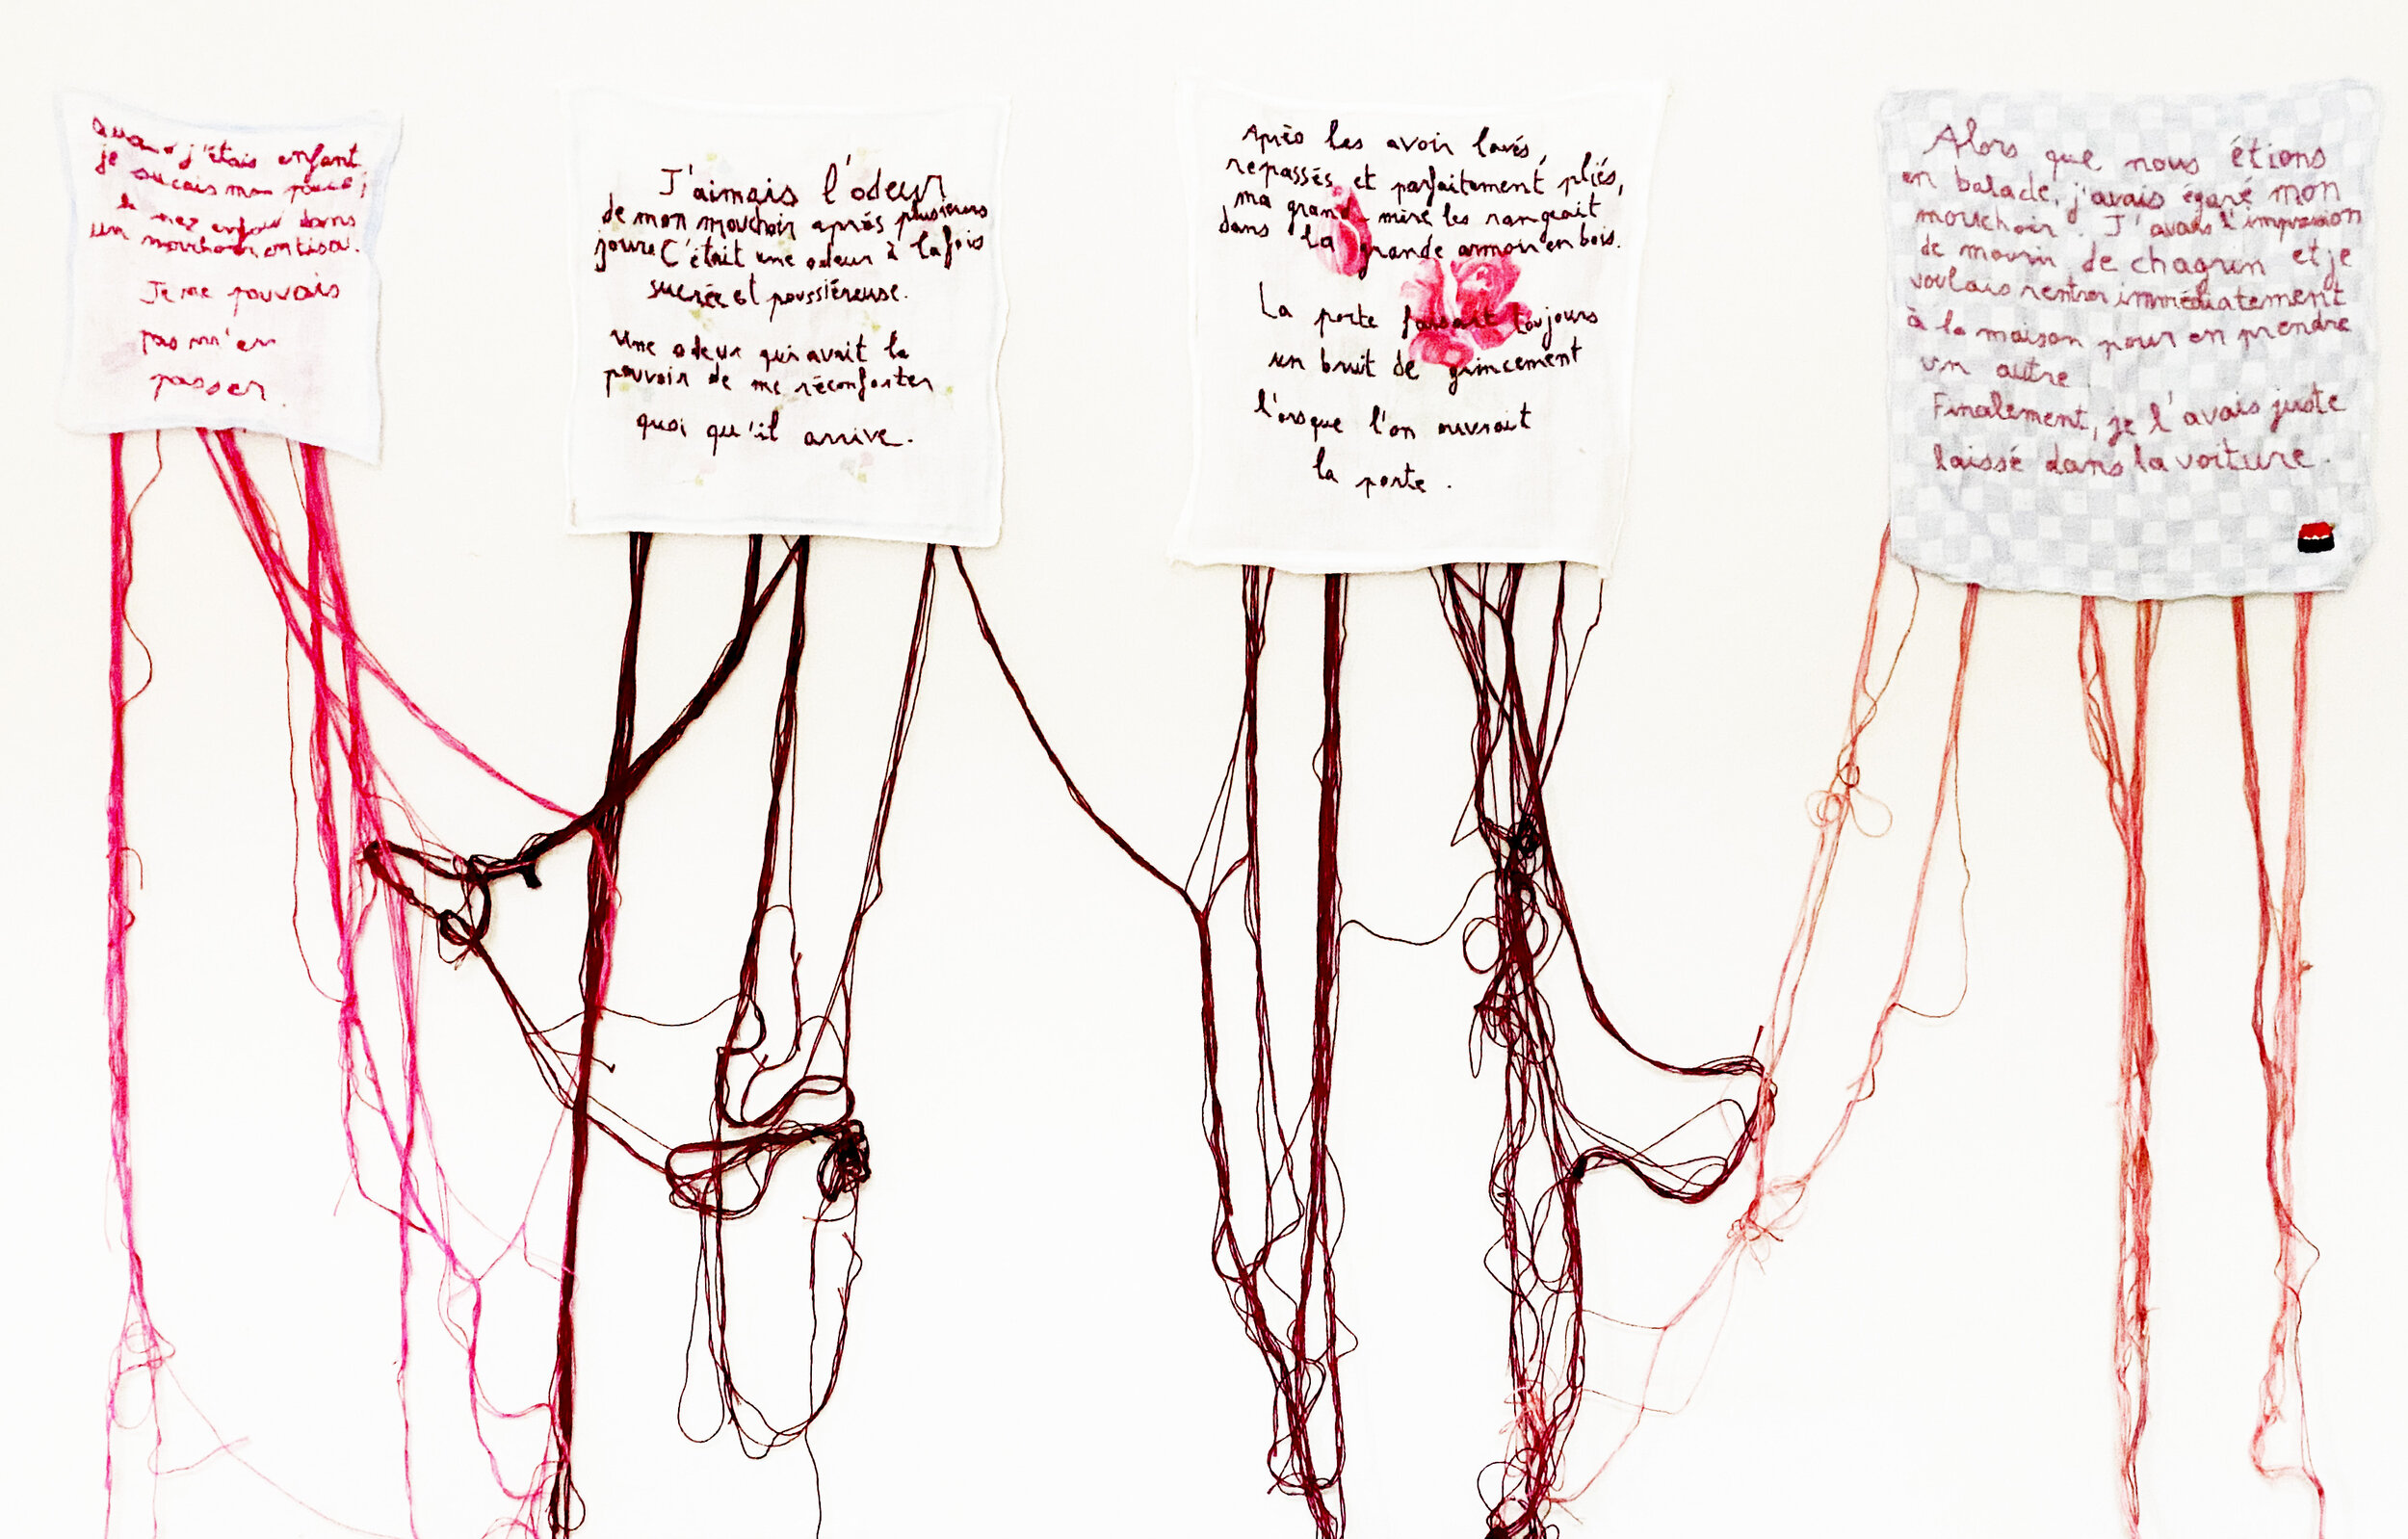 Quand j'étais enfant
je suçais mon pouce,
le nez enfoui dans
un mouchoir en tissu.
Je ne pouvais
pas m'en
passer.
J'aimais l'odeur
de mon mouchoir après plusieurs
jours. C'était une odeur à la fois
sucrée et poussiéreuse.
Une odeur qui avait le
pouvoir de me réconforter
quoi qu'il arrive.
Après les avoir lavés,
repassés et parfaitement pliés,
ma grand mère les rangeait
dans la grande armoire en bois.
La porte faisait toujours
un bruit de grincement
l'orsque l'on ouvrait
la porte.
Alors que nous étions
en balade, j'avais égaré mon
mouchoir. J'avais l'impression
de mourir de chagrin et je
voulais rentrer immédiatement
à la maison pour en prendre
un autre.
Finalement, je l'avais juste
laissé dans la voiture.